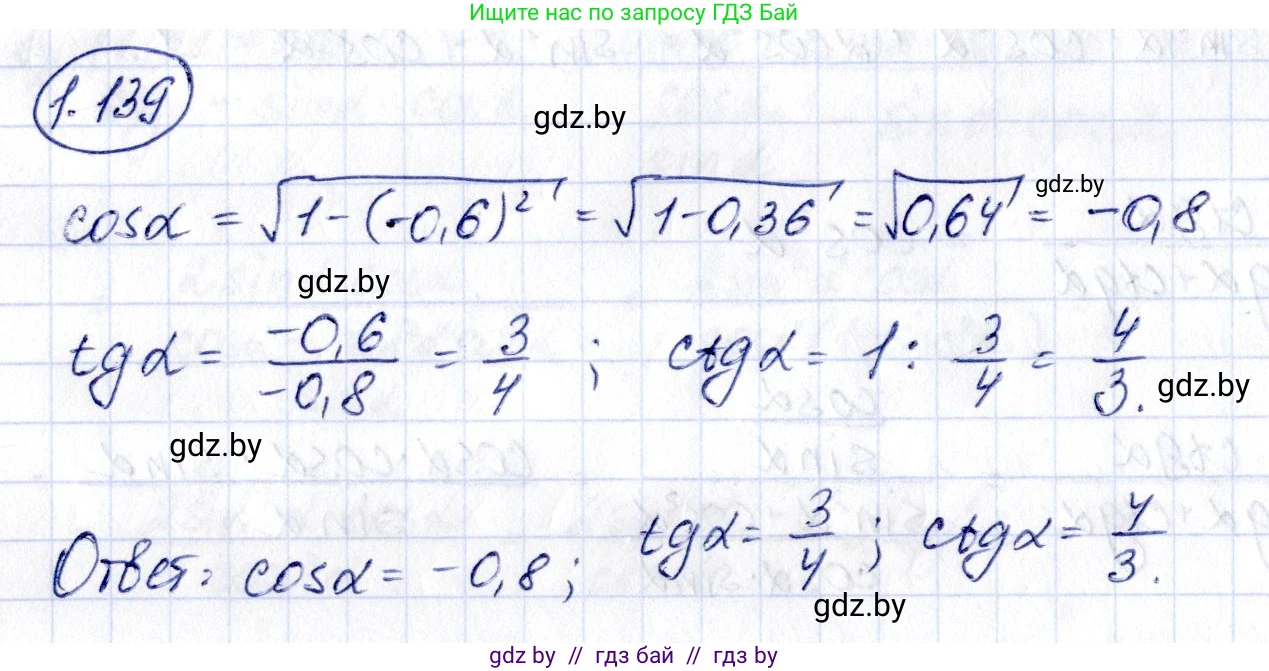 Ищите нас по запросу ГДЗ Бай
1.139
gdz.by
cosα = √(1-(-0,6)²) = √(1-0,36) = √0,64 = -0,8
gdz.by
gdz.by
tgα = -0,6/-0,8 = 3/4 ; ctgα = 1 : 3/4 = 4/3.
gdz.by
gdz.by
Ответ: cosα = -0,8; tgα = 3/4; ctgα = 4/3.
gdz.by
gdz by // гдз бай // gdz by